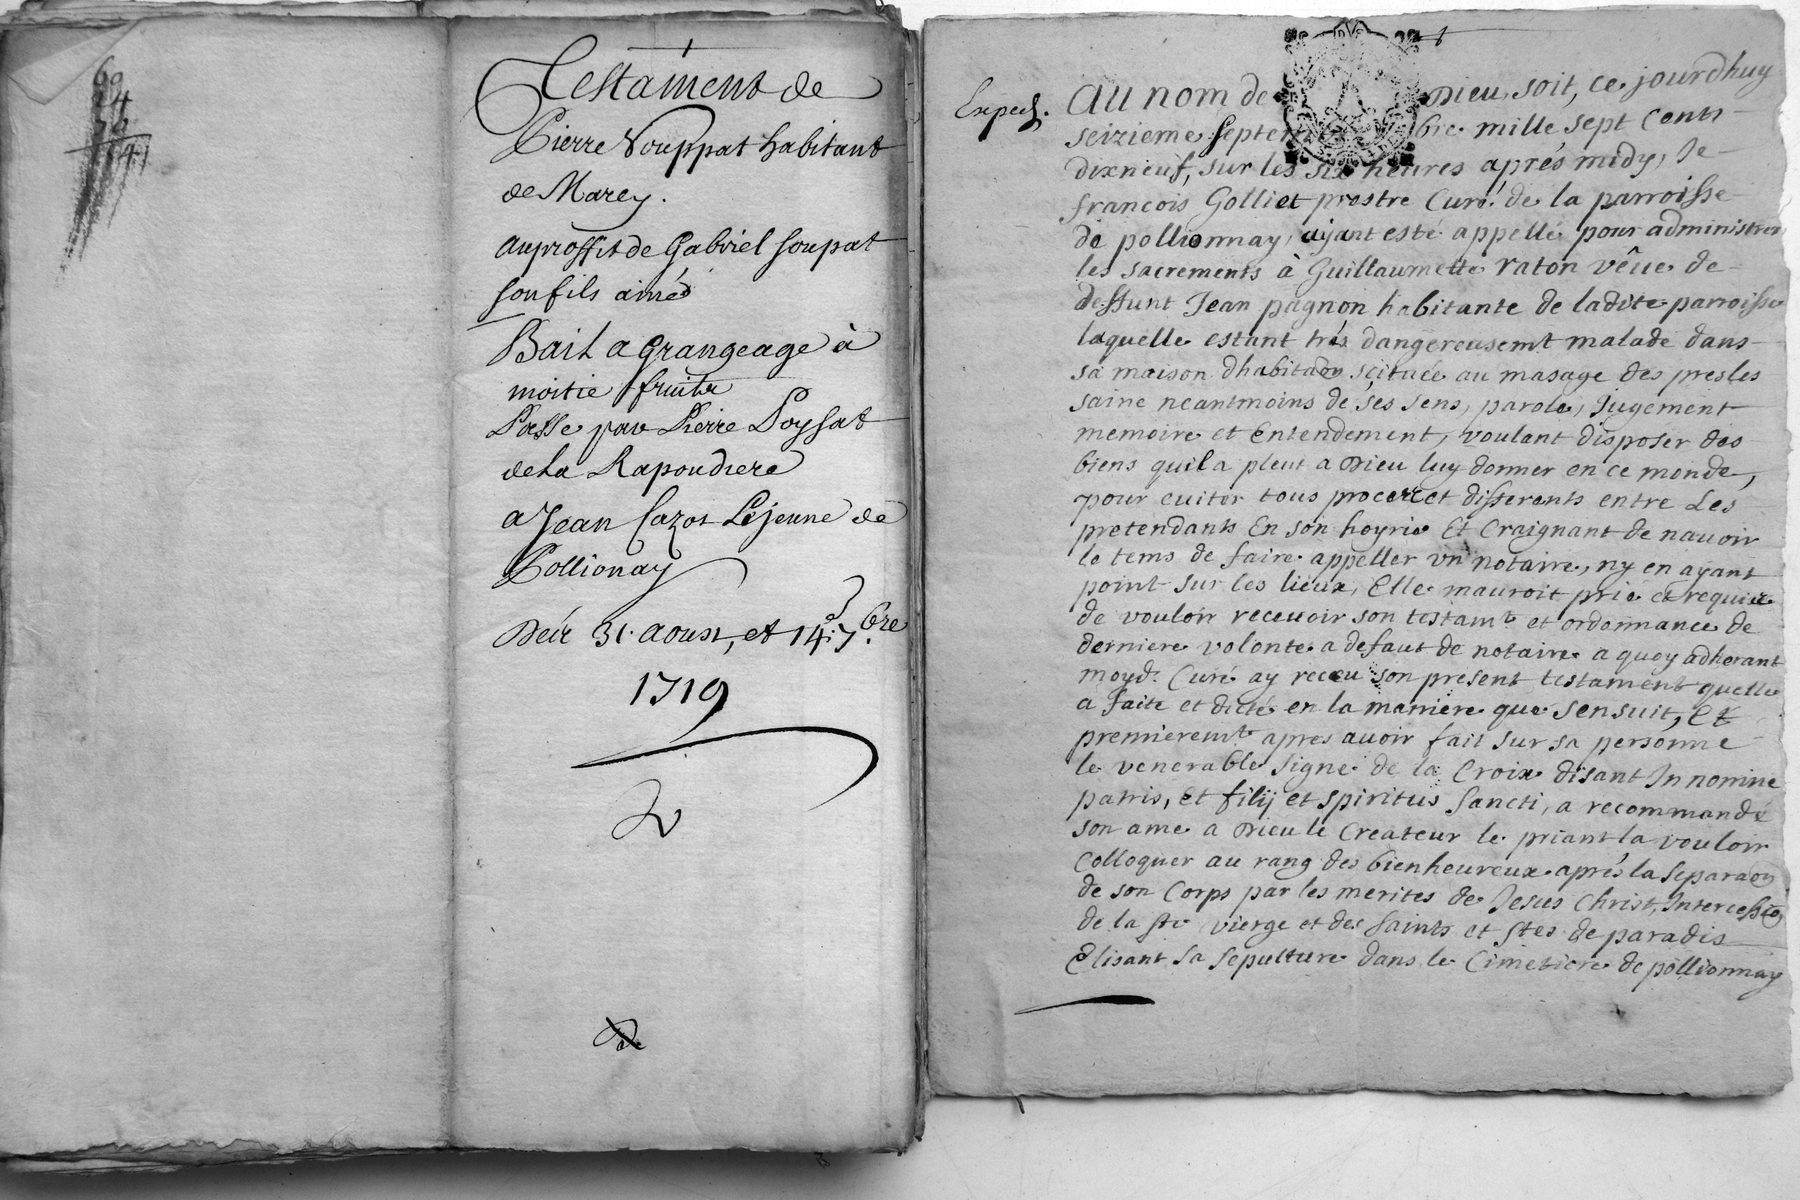 69
74
74
141
Testament de
Pierre Vouppat habitant
de Marcy.
auproffit de Gabriel soupat
son fils ainé
Bail a Grangeage à
moitie fruits
Passé par Pierre Poysat
de la Rapoudiere
a Jean Cazot Lejeune de
Pollionay
Deir 31. aoust, et 14.e 7.bre
1719
Exped.
Au nom de Dieu soit, ce jourdhuy
seizieme septembre mille sept cents
dixneuf, sur les six heures aprés midy, Je
françois Golliet prestre Curé de la parroisse
de pollionnay, ayant esté appellé pour administrer
les sacrements à Guillaumette raton vêue de
deffunt Jean pagnon habitante de ladite parroisse
laquelle estant trés dangereusemt malade dans
sa maison dhabitaon scituée au masage des presles
saine neantmoins de ses sens, parole, Jugement
memoire et Entendement, voulant disposer des
biens quil a pleut a Dieu luy donner en ce monde,
pour euiter tous procez et differents entre Les
pretendants En son hoyrie Et Craignant de nauoir
le tems de faire appeller vn notaire, ny en ayant
point sur les lieux, Elle mauroit prié et requis
de vouloir receuoir son testamt et ordonnance de
derniere volonte a defaut de notaire a quoy adherant
moyd. Curé ay receu son present testament quelle
a faite et dicté en la maniere que sensuit, Et
premieremt apres auoir fait sur sa personne
le venerable signe de la Croix disant In nomine
patris, et filij et spiritus sancti, a recommandé
son ame a Dieu le Createur le priant la vouloir
Colloquer au rang des bienheureux aprés la separaon
de son Corps par les merites de Jesus Christ, Intercessio
de la ste vierge et des saints et stes de paradis
Elisant sa sepulture dans le Cimetiere de pollionnay